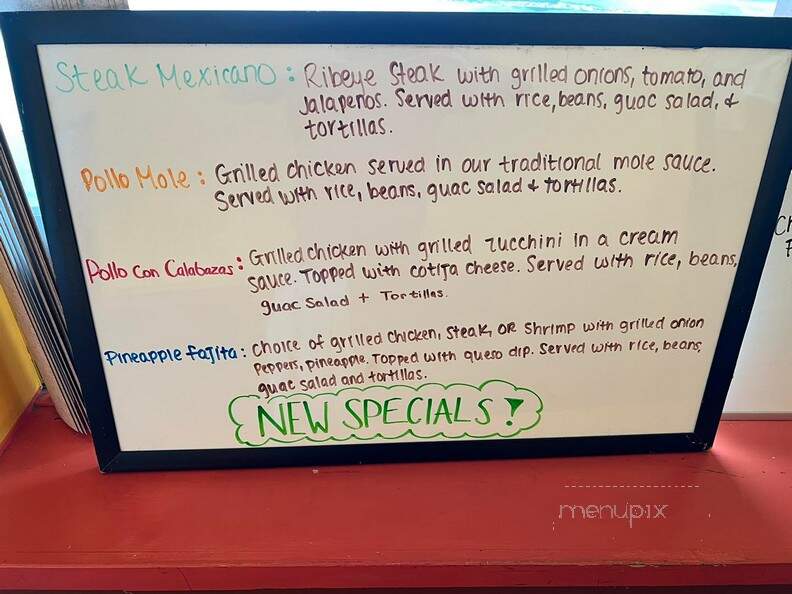 Steak Mexicano: Ribeye Steak with grilled onions, tomato, and
Jalapenos. Served with rice, beans, guac salad, &
tortillas.
Pollo Mole: Grilled chicken served in our traditional mole sauce.
Served with rice, beans, guac salad & tortillas.
Pollo Con Calabazas: Grilled chicken with grilled zucchini in a cream
sauce. Topped with cotija cheese. Served with rice, beans,
guac salad + Tortillas.
Pineapple fajita: Choice of grilled chicken, steak, OR Shrimp with grilled onion
Peppers, pineapple. Topped with queso dip. Served with rice, beans,
guac salad and tortillas.
NEW SPECIALS!
menupix